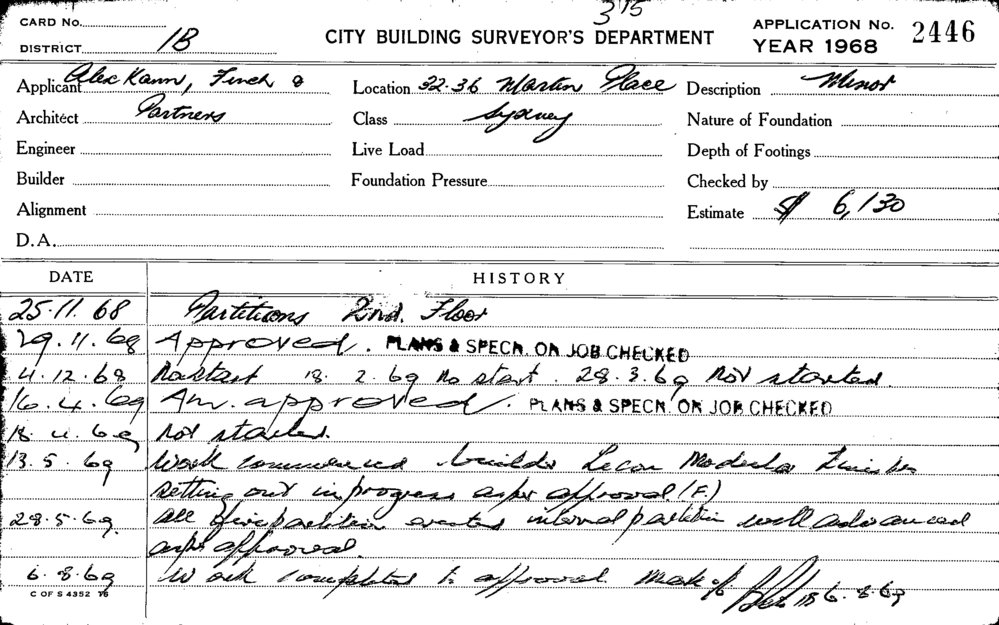 315
CARD No.
DISTRICT 1B
CITY BUILDING SURVEYOR'S DEPARTMENT
APPLICATION No. 2446
YEAR 1968
Applicant Alec Kann, Finch &
Location 32-36 Martin Place
Description Minor
Architect Partners
Class Sydney
Nature of Foundation
Engineer
Live Load
Depth of Footings
Builder
Foundation Pressure
Checked by
Alignment
Estimate $ 6,130
D.A.
DATE HISTORY
25.11.68 Partitions 2nd. Floor
29.11.68 Approved. PLANS & SPECN. ON JOB CHECKED
4.12.68 No start 18. 2.69 No start. 28.3.69 Not started
16.4.69 Am. approved. PLANS & SPECN. ON JOB CHECKED
18.4.69 Not started.
13.5.69 Work commenced builder
setting out in progress as per approval (F.)
28.5.69 all partition erected internal partition well advanced
as per approval.
6.8.69 Work completed to approval. 1B 6.8.69
C OF S 4352 76